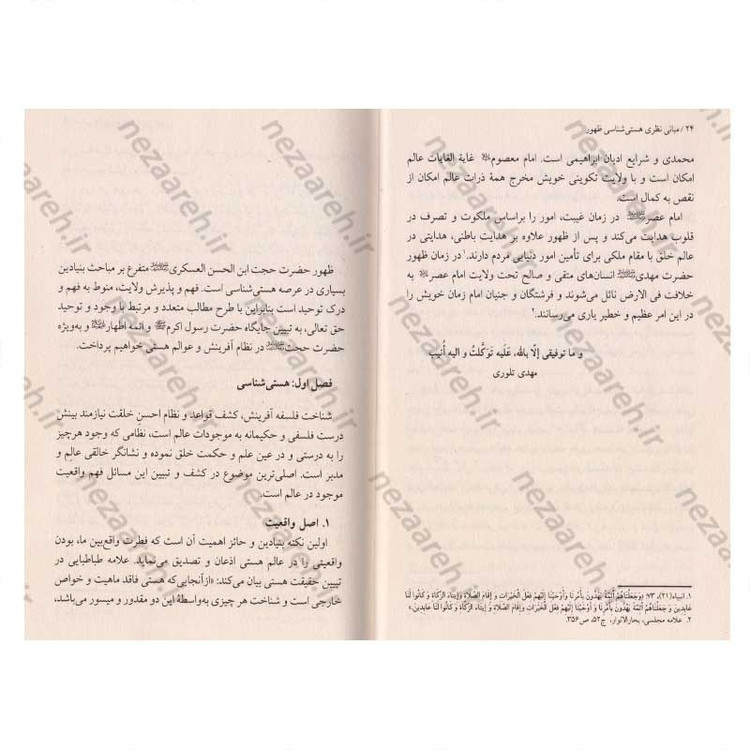 ۲۴ / مبانی نظری هستی‌شناسی ظهور
محمدی و شرایع ادیان ابراهیمی است. امام معصوم غایة الغایات عالم
امکان است و با ولایت تکوینی خویش مخرج همهٔ ذرات عالم امکان از
نقص به کمال است.
امام عصر در زمان غیبت، امور را براساس ملکوت و تصرف در
قلوب هدایت می‌کند و پس از ظهور علاوه بر هدایت باطنی، هدایتی در
عالم خلق با مقام ملکی برای تأمین امور دنیایی مردم دارند.۱ در زمان ظهور
حضرت مهدی انسان‌های متقی و صالح تحت ولایت امام عصر به
خلافت فی الارض نائل می‌شوند و فرشتگان و جنیان امام زمان خویش را
در این امر عظیم و خطیر یاری می‌رسانند.۲
و ما توفیقی إلّا بالله، عَلَیه تَوَکَّلتُ و الیه أُنیب
مهدی تلوری
۱. انبیاء(۲۱)، ۷۳: «وَجَعَلْنَاهُمْ أَئِمَّةً يَهْدُونَ بِأَمْرِنَا وَأَوْحَيْنَا إِلَيْهِمْ فِعْلَ الْخَيْرَاتِ وَ إِقَامَ الصَّلَاةِ وَ إِيتَاءَ الزَّكَاةِ وَ كَانُوا لَنَا
عَابِدِينَ وَ جَعَلْنَاهُمْ أَئِمَّةً يَهْدُونَ بِأَمْرِنَا وَ أَوْحَيْنَا إِلَيْهِمْ فِعْلَ الْخَيْرَاتِ وَ إِقَامَ الصَّلَاةِ وَ إِيتَاءَ الزَّكَاةِ وَ كَانُوا لَنَا عَابِدِينَ.»
۲. علامه مجلسی، بحارالانوار، ج۵۲، ص۳۵۶.
ظهور حضرت حجت ابن الحسن العسکری متفرع بر مباحث بنیادین
بسیاری در عرصه هستی‌شناسی است. فهم و پذیرش ولایت، منوط به فهم و
درک توحید است بنابراین با طرح مطالب متعدد و مرتبط با وجود و توحید
حق تعالی، به تبیین جایگاه حضرت رسول اکرم و ائمه اطهار و به‌ویژه
حضرت حجت در نظام آفرینش و عوالم هستی خواهیم پرداخت.
فصل اول: هستی‌شناسی
شناخت فلسفه آفرینش، کشف قواعد و نظام احسن خلقت نیازمند بینش
درست فلسفی و حکیمانه به موجودات عالم است، نظامی که وجود هرچیز
را به درستی و در عین علم و حکمت خلق نموده و نشانگر خالقی عالِم و
مدبر است. اصلی‌ترین موضوع در کشف و تبیین این مسائل فهم واقعیت
موجود در عالم است.
۱. اصل واقعیت
اولین نکته بنیادین و حائز اهمیت آن است که فطرت واقع‌بین ما، بودن
واقعیتی را در عالم هستی اذعان و تصدیق می‌نماید. علامه طباطبایی در
تبیین حقیقت هستی بیان می‌کند: «ازآنجایی‌که هستی فاقد ماهیت و خواص
خارجی است و شناخت هر چیزی به‌واسطهٔ این دو مقدور و میسور می‌باشد،
nezaareh.ir
nezaareh.ir
nezaareh.ir
nezaareh.ir
nezaareh.ir
nezaareh.ir